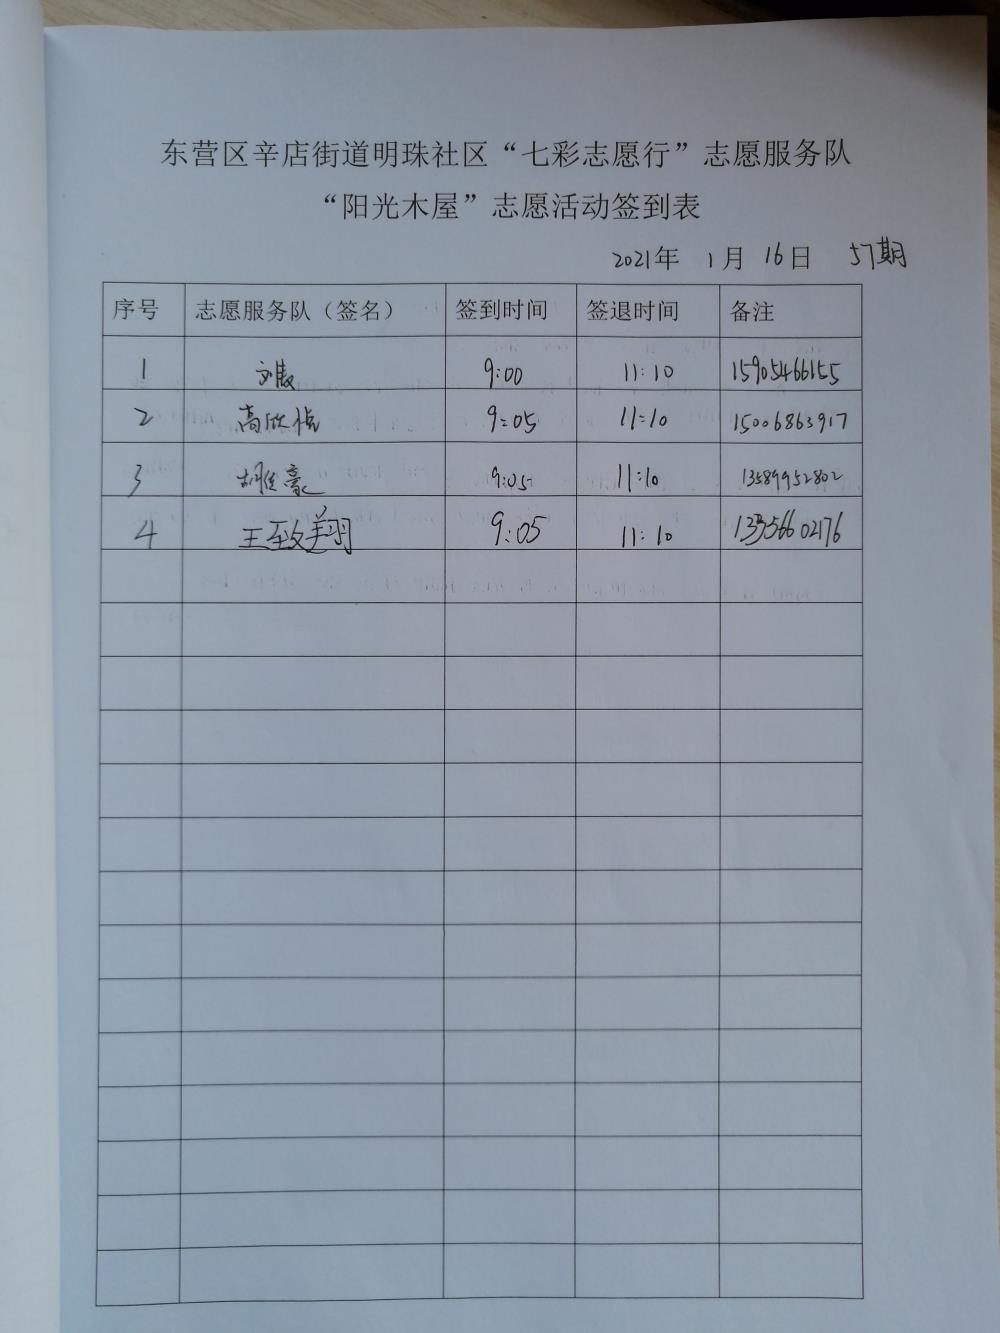 东营区辛店街道明珠社区“七彩志愿行”志愿服务队
“阳光木屋”志愿活动签到表
2021年 1月 16日 57期
序号 志愿服务队（签名） 签到时间 签退时间 备注
1 刘 9:00 11:10 15905466155
2 高欣 9:05 11:10 15006863917
3 胡 豪 9:05 11:10 13589952802
4 王致翔 9:05 11:10